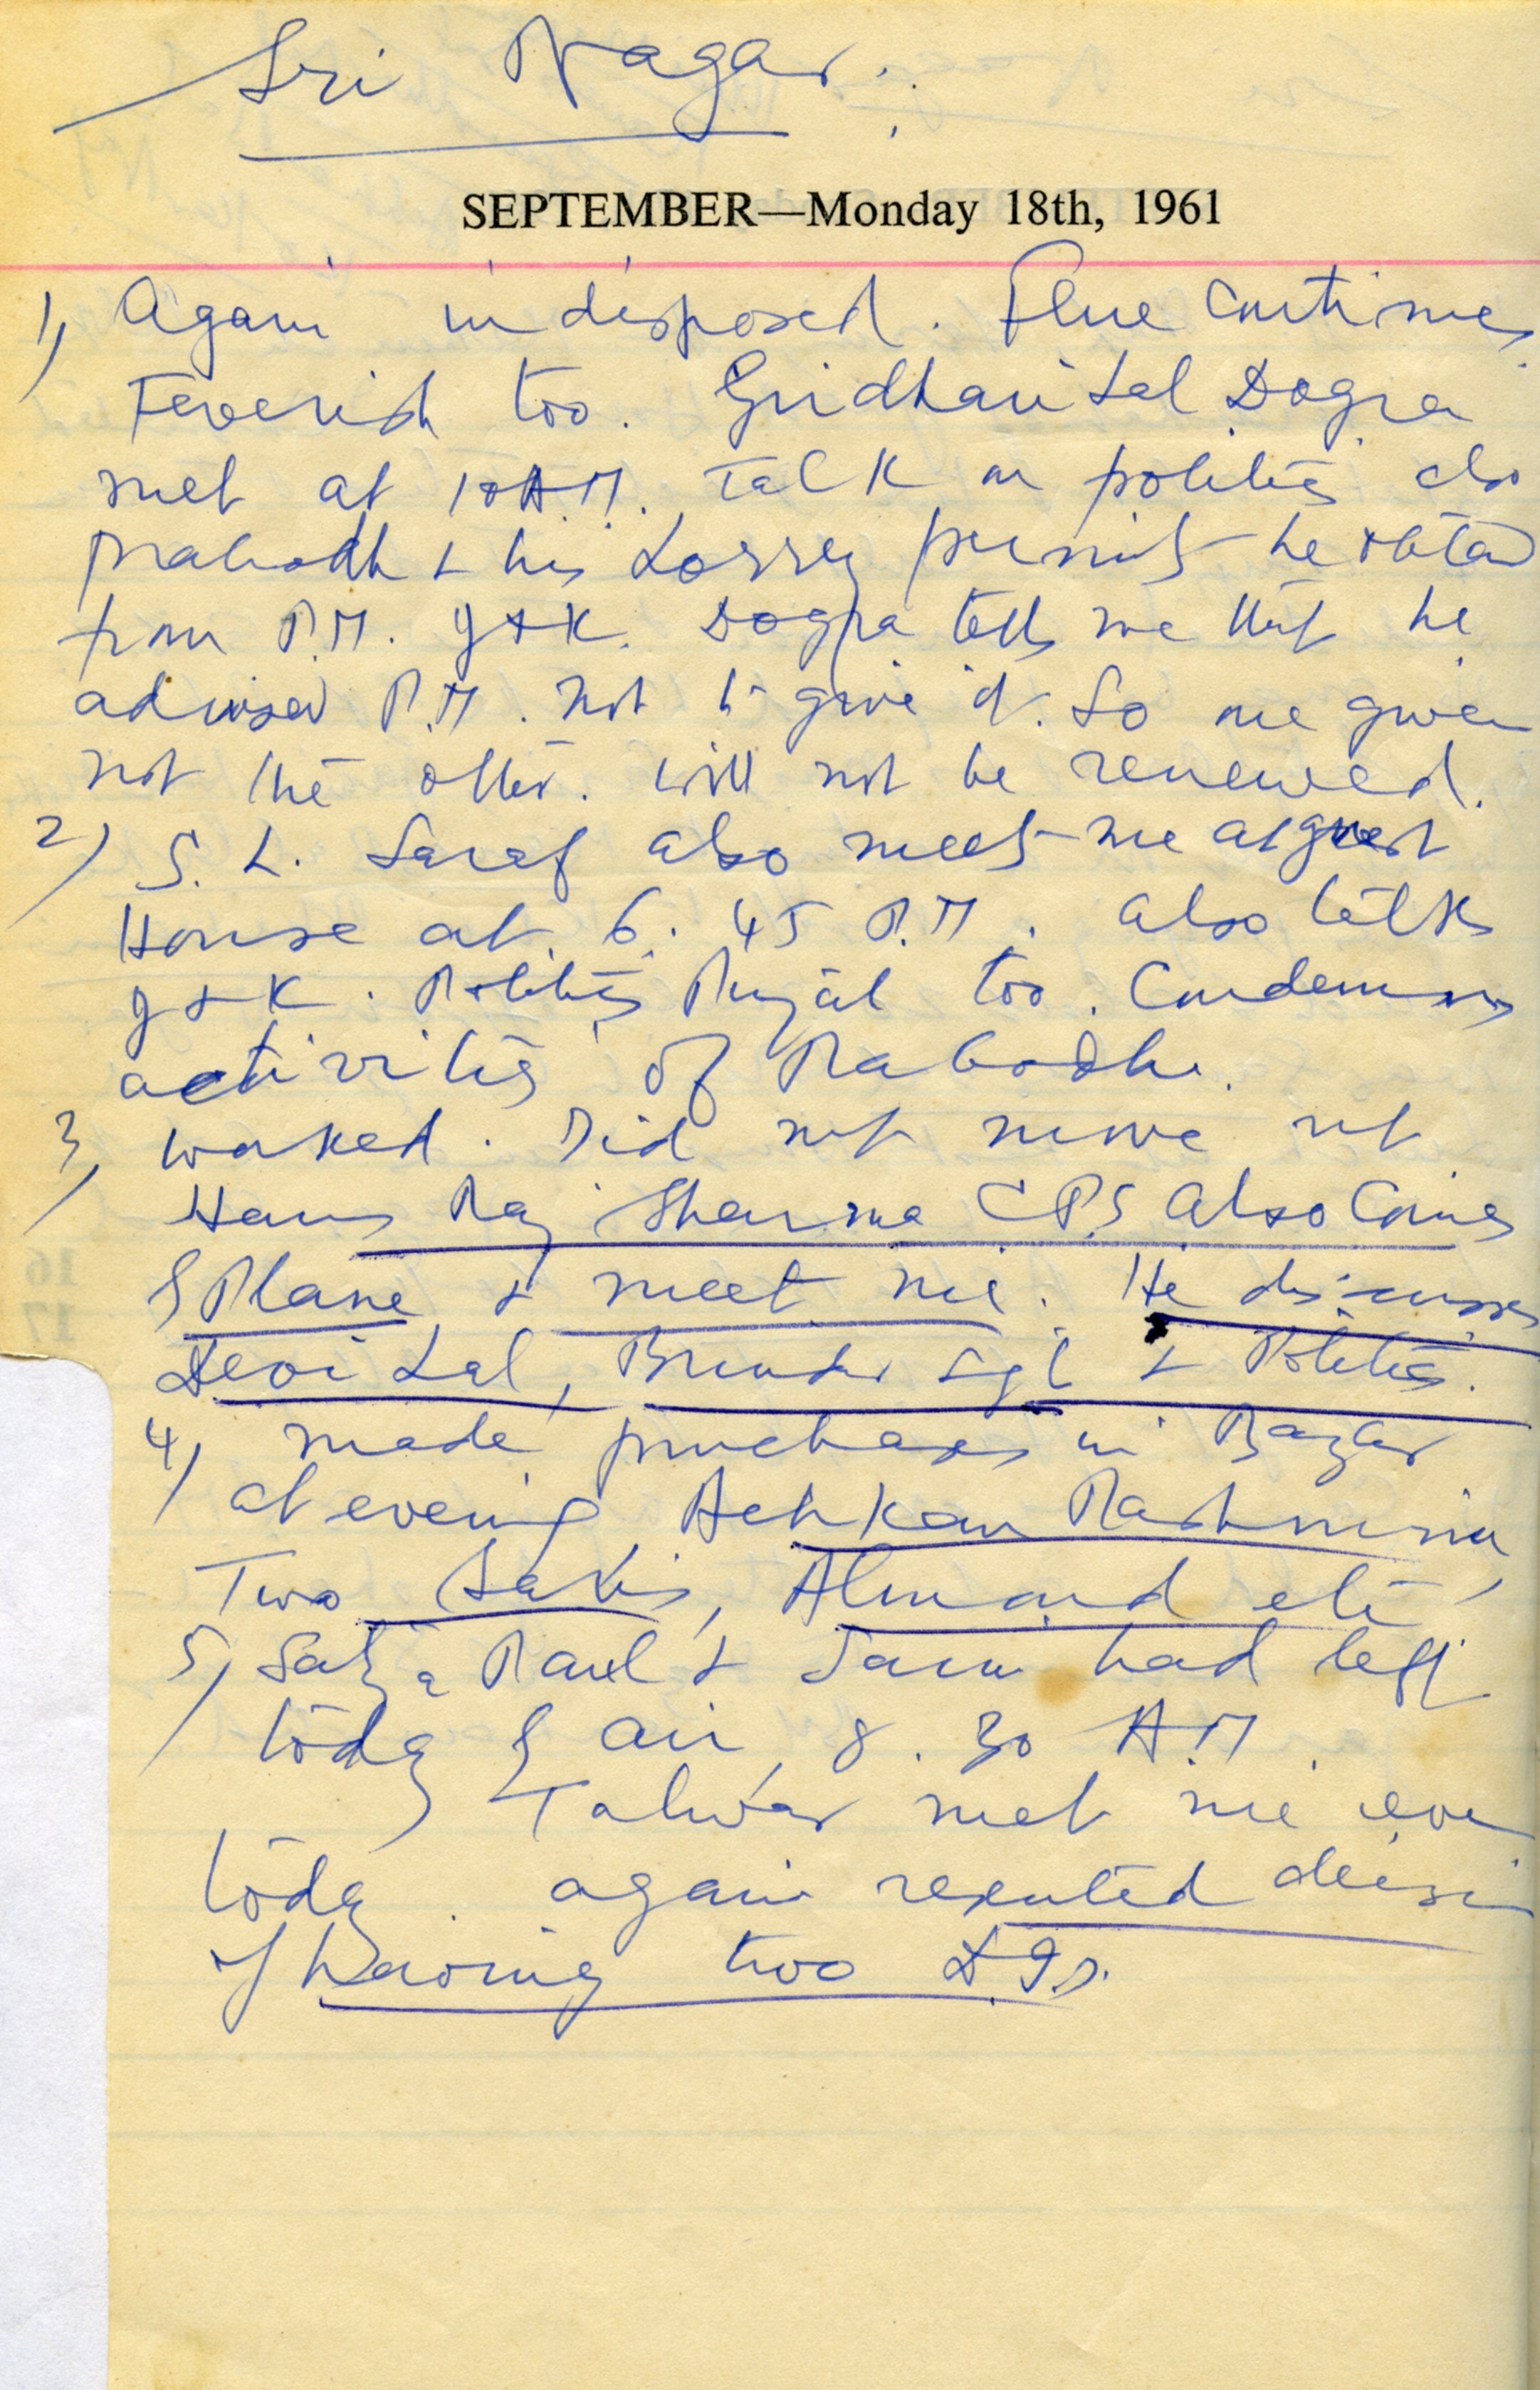 Sri Nagar.
SEPTEMBER—Monday 18th, 1961
1) Again indisposed. Flue continues
Feverish too. Girdhari Lal Dogra
met at 10 A.M. Talk on politics also
Prabodh & his Lorry permits he obtained
from P.M. J & K. Dogra tells me that he
advised P.M. not to give it. So one given
not the other. Will not be renewed.
2) S. L. Saraf also meets me at guest
House at 6.45 P.M. also talks
J & K. Politics Punjab too. Condemns
activities of Prabodh.
3) worked. Did not move out
Hans Raj Sharma CPS also comes
by Plane & meet me. He discusses
Devi Lal, & Politics.
4) made purchases in Bazar
at evening Achkan Pashmina,
Two , Almond etc
5) Satya Paul & had left
today by air 8.30 A.M.
Talwar met me
today. again resented decision
of having two